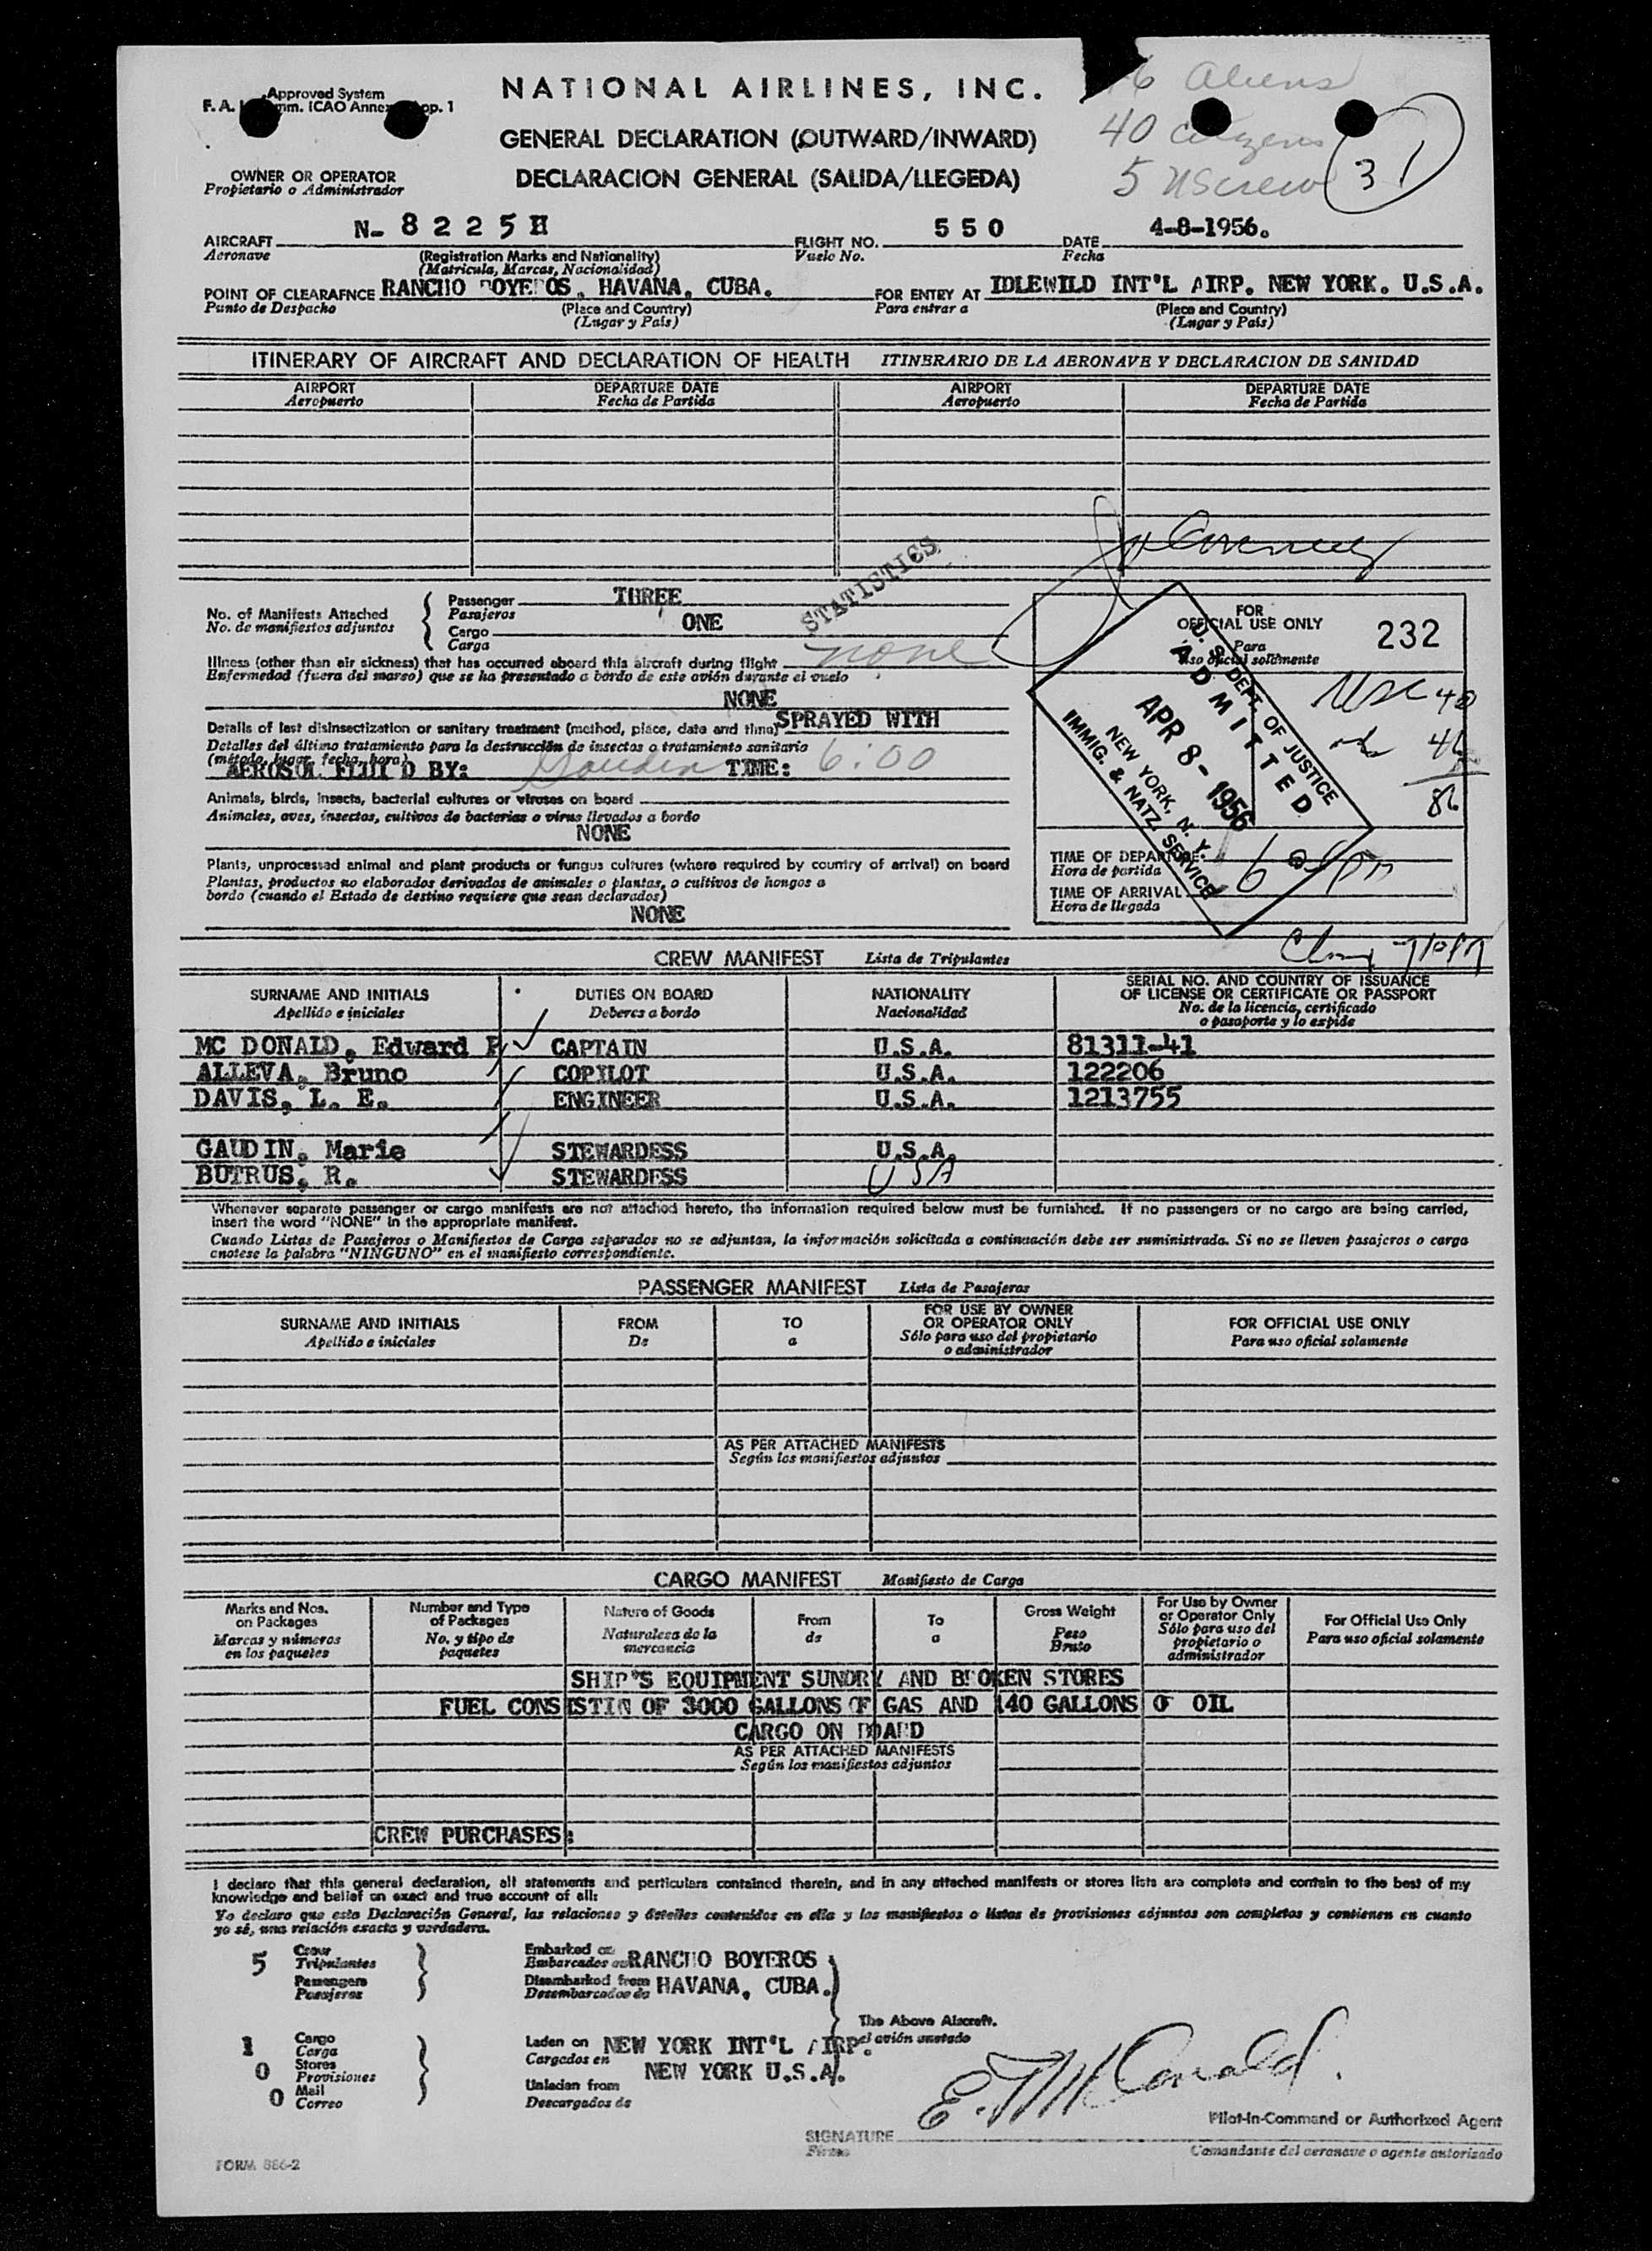 Approved System
NATIONAL AIRLINES, INC.
6 Aliens
40 citizens
5 US crew
31
GENERAL DECLARATION (OUTWARD/INWARD)
DECLARACION GENERAL (SALIDA/LLEGEDA)
OWNER OR OPERATOR
Propietario o Administrador
AIRCRAFT N- 8225H FLIGHT NO. 550 DATE 4-8-1956.
Aeronave (Registration Marks and Nationality) Vuelo No. Fecha
(Matricula, Marcas, Nacionalidad)
POINT OF CLEARAFNCE RANCHO BOYEROS, HAVANA, CUBA. FOR ENTRY AT IDLEWILD INT'L AIRP. NEW YORK. U.S.A.
Punto de Despacho (Place and Country) Para entrar a (Place and Country)
(Lugar y País) (Lugar y País)
ITINERARY OF AIRCRAFT AND DECLARATION OF HEALTH ITINERARIO DE LA AERONAVE Y DECLARACION DE SANIDAD
AIRPORT DEPARTURE DATE AIRPORT DEPARTURE DATE
Aeropuerto Fecha de Partida Aeropuerto Fecha de Partida
STATISTICS
No. of Manifests Attached Passenger THREE
No. de manifiestos adjuntos Pasajeros
Cargo ONE
Carga
Illness (other than air sickness) that has occurred aboard this aircraft during flight none
Enfermedad (fuera del mareo) que se ha presentado a bordo de este avión durante el vuelo
NONE
Details of last disinsectization or sanitary treatment (method, place, date and time) SPRAYED WITH
Detalles del último tratamiento para la destrucción de insectos o tratamiento sanitario
(método, lugar, fecha, hora)
AEROSOL FLUID BY: Gaudin TIME: 6:00
Animals, birds, insects, bacterial cultures or viruses on board
Animales, aves, insectos, cultivos de bacterias o virus llevados a bordo
NONE
Plants, unprocessed animal and plant products or fungus cultures (where required by country of arrival) on board
Plantas, productos no elaborados derivados de animales o plantas, o cultivos de hongos a
bordo (cuando el Estado de destino requiere que sean declarados)
NONE
FOR
OFFICIAL USE ONLY 232
Para
uso oficial solamente
USC 40
46
86
U. S. DEPT. OF JUSTICE
ADMITTED
APR 8 - 1956
NEW YORK, N. Y.
IMMIG. & NATZ. SERVICE
TIME OF DEPARTURE
Hora de partida
TIME OF ARRIVAL
Hora de llegada
CREW MANIFEST Lista de Tripulantes
SURNAME AND INITIALS DUTIES ON BOARD NATIONALITY SERIAL NO. AND COUNTRY OF ISSUANCE
OF LICENSE OR CERTIFICATE OR PASSPORT
Apellido e iniciales Deberes a bordo Nacionalidad No. de la licencia, certificado
o pasaporte y lo expide
MC DONALD, Edward CAPTAIN U.S.A. 81311-41
ALLEVA, Bruno COPILOT U.S.A. 122206
DAVIS, L. E. ENGINEER U.S.A. 1213755
GAUDIN, Marie STEWARDESS U.S.A.
BUTRUS, R. STEWARDESS USA
Whenever separate passenger or cargo manifests are not attached hereto, the information required below must be furnished. If no passengers or no cargo are being carried,
insert the word "NONE" in the appropriate manifest.
Cuando Listas de Pasajeros o Manifiestos de Carga separados no se adjuntan, la información solicitada a continuación debe ser suministrada. Si no se lleven pasajeros o carga
anotese la palabra "NINGUNO" en el manifiesto correspondiente.
PASSENGER MANIFEST Lista de Pasajeros
SURNAME AND INITIALS FROM TO FOR USE BY OWNER
OR OPERATOR ONLY FOR OFFICIAL USE ONLY
Apellido e iniciales De a Sólo para uso del propietario
o administrador Para uso oficial solamente
AS PER ATTACHED MANIFESTS
Según los manifiestos adjuntos
CARGO MANIFEST Manifiesto de Carga
Marks and Nos.
on Packages
Marcas y números
en los paquetes
Number and Type
of Packages
No. y tipo de
paquetes
Nature of Goods
Naturaleza de la
mercancia
From
de
To
a
Gross Weight
Peso
Bruto
For Use by Owner
or Operator Only
Sólo para uso del
propietario o
administrador
For Official Use Only
Para uso oficial solamente
SHIP'S EQUIPMENT SUNDRY AND BROKEN STORES
FUEL CONSISTIN OF 3000 GALLONS OF GAS AND 140 GALLONS OF OIL
CARGO ON BOARD
AS PER ATTACHED MANIFESTS
Según los manifiestos adjuntos
CREW PURCHASES:
I declare that this general declaration, all statements and particulars contained therein, and in any attached manifests or stores lists are complete and contain to the best of my
knowledge and belief an exact and true account of all:
Yo declaro que esta Declaración General, las relaciones y detalles contenidos en ella y los manifiestos o listas de provisiones adjuntos son completos y contienen en cuanto
yo sé, una relación exacta y verdadera.
5 Crew
Tripulantes
Passengers
Pasajeros
Embarked on
Embarcados en RANCHO BOYEROS
Disembarked from HAVANA, CUBA.
Desembarcados de
The Above Aircraft.
el avión anotado
1 Cargo
Carga
0 Stores
Provisiones
0 Mail
Correo
Laden on NEW YORK INT'L AIRP.
Cargados en NEW YORK U.S.A.
Unladen from
Descargados de
E. McDonald.
Pilot-In-Command or Authorized Agent
SIGNATURE
Firma
Comandante del aeronave o agente autorizado
FORM 886-2